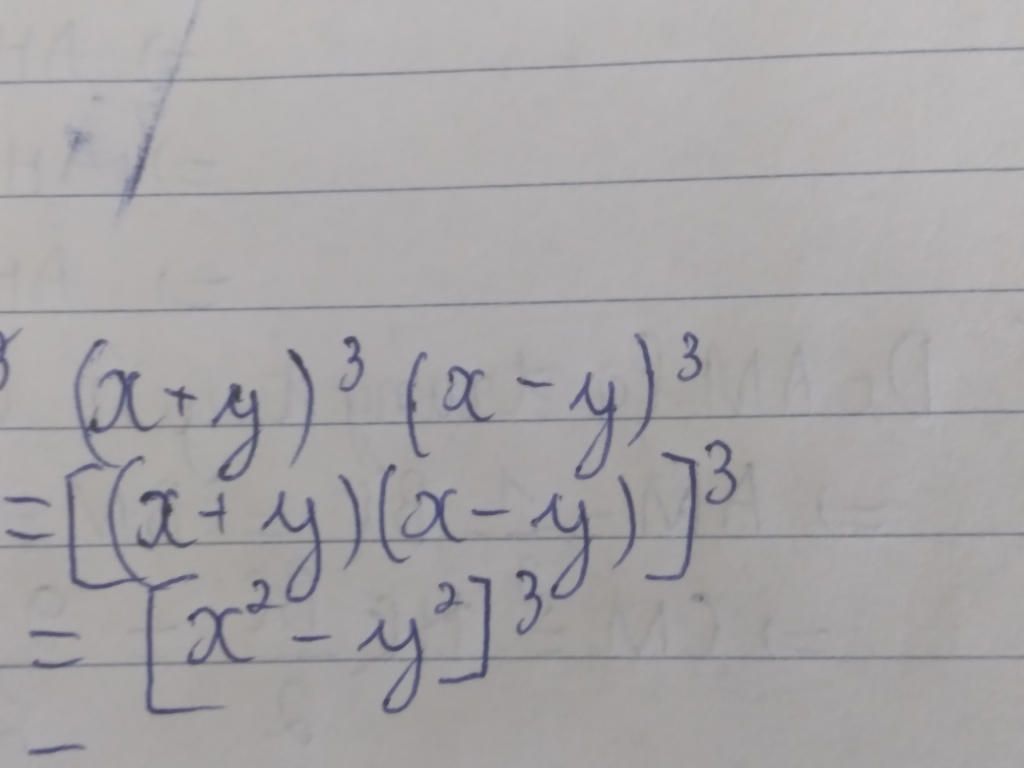 (x+y)³ (x-y)³
=[(x+y)(x-y)]³
= [x²-y²]³